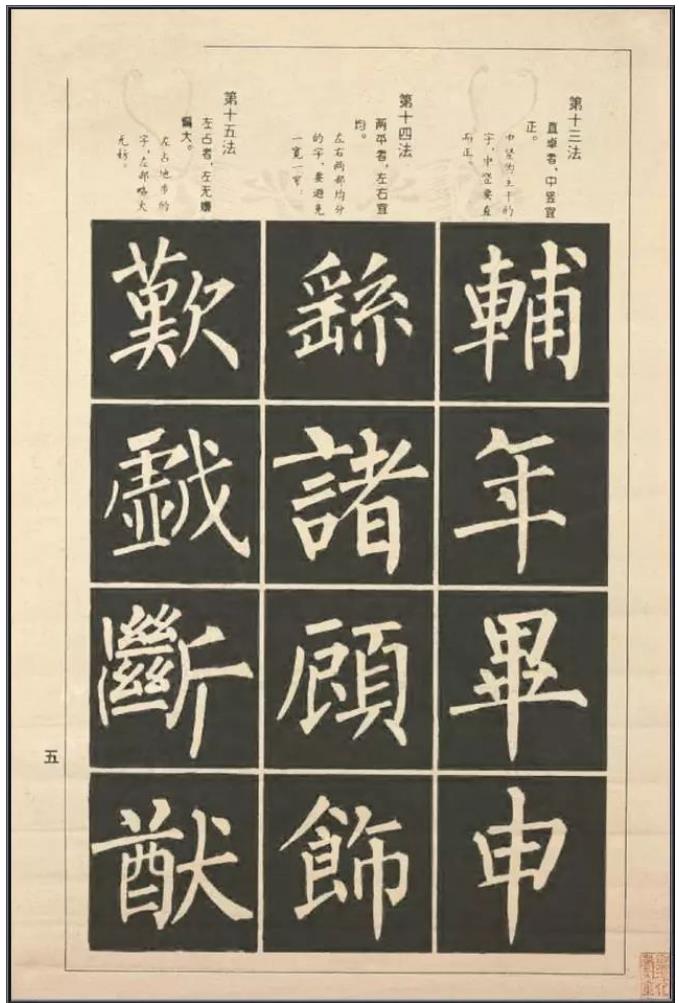 第十三法
直卓者，中竖宜
正。
中竖为主干的
字，中竖要直
而正。
輔
年
畢
申
第十四法
两平者，左右宜
均。
左右两部均分
的字，要避免
一宽一窄。
繇
諸
頋
飾
第十五法
左占者，左无嫌
偏大。
左占地步的
字，左部略大
无妨。
歎
戯
斷
猷
五